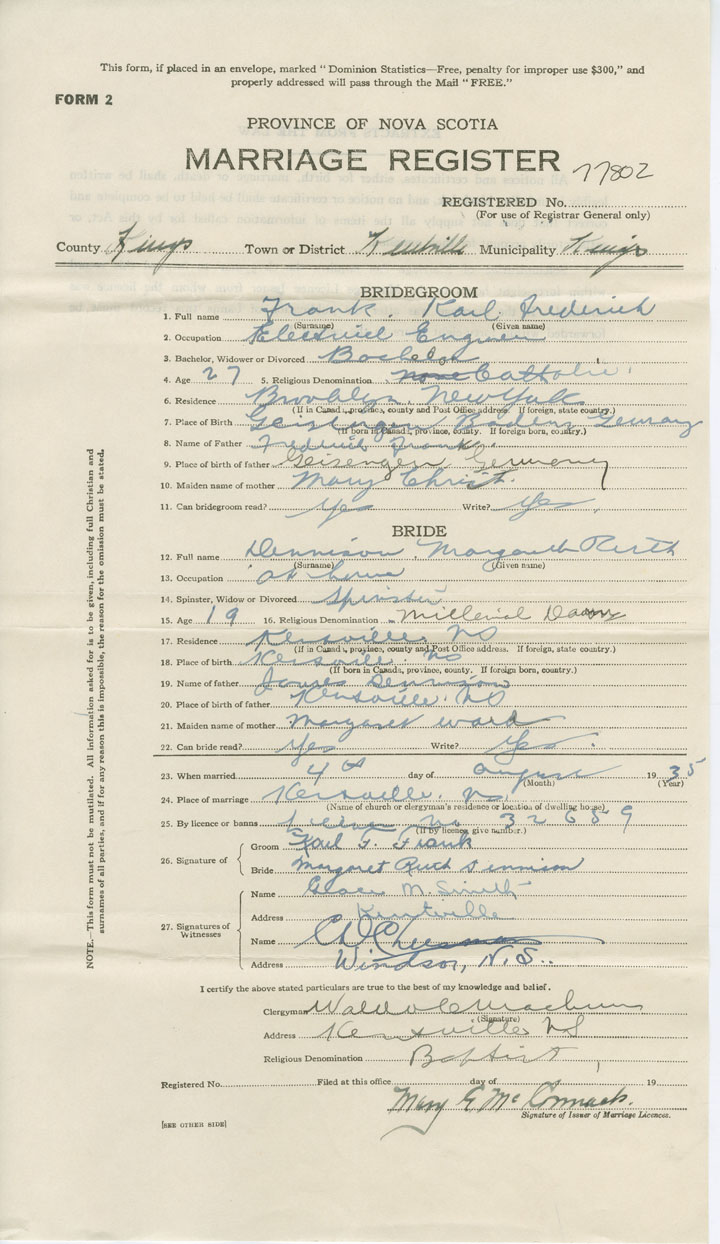 This form, if placed in an envelope, marked "Dominion Statistics—Free, penalty for improper use $300," and
properly addressed will pass through the Mail "FREE."
FORM 2
PROVINCE OF NOVA SCOTIA
MARRIAGE REGISTER
77802
REGISTERED No.
(For use of Registrar General only)
County Kings Town or District Kentville Municipality Kings
BRIDEGROOM
1. Full name Frank, Karl Frederick
(Surname) (Given name)
2. Occupation Electrical Engineer
3. Bachelor, Widower or Divorced Bachelor
4. Age 27 5. Religious Denomination none Catholic
6. Residence Brooklyn, New York
(If in Canada, province, county and Post Office address. If foreign, state country.)
7. Place of Birth Baden Germany
(If born in Canada, province, county. If foreign born, country.)
8. Name of Father Frederick Frank
9. Place of birth of father Geisengen Germany
10. Maiden name of mother Mary Christ
11. Can bridegroom read? Yes Write? Yes
BRIDE
12. Full name Dennison, Margaret Ruth
(Surname) (Given name)
13. Occupation at home
14. Spinster, Widow or Divorced Spinster
15. Age 19 16. Religious Denomination Millenial Dawn
17. Residence Kentville NS
(If in Canada, province, county and Post Office address. If foreign, state country.)
18. Place of birth Kentville NS
(If born in Canada, province, county. If foreign born, country.)
19. Name of father James Dennison
20. Place of birth of father Kentville NS
21. Maiden name of mother Margaret Ward
22. Can bride read? Yes Write? Yes
23. When married 4th day of August 1935
(Month) (Year)
24. Place of marriage Kentville NS
(Name of church or clergyman's residence or location of dwelling house)
25. By licence or banns License No 32659
(If by licence, give number.)
26. Signature of
Groom Karl F. Frank
Bride Margaret Ruth Dennison
27. Signatures of Witnesses
Name Grace M. Smith
Address Kentville
Name
Address Windsor, N.S.
I certify the above stated particulars are true to the best of my knowledge and belief.
Clergyman Waldo C Machum
(Signature)
Address Kentville NS
Religious Denomination Baptist
Registered No. Filed at this office day of 19
Mary E McCormack.
Signature of Issuer of Marriage Licences.
[SEE OTHER SIDE]
NOTE.—This form must not be mutilated. All information asked for is to be given, including full Christian and
surnames of all parties, and if for any reason this is impossible, the reason for the omission must be stated.